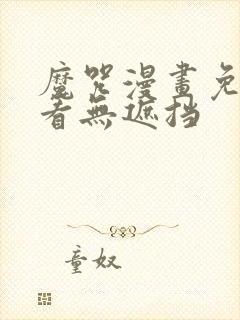 魔咒漫畫免
看無遮挡
童奴